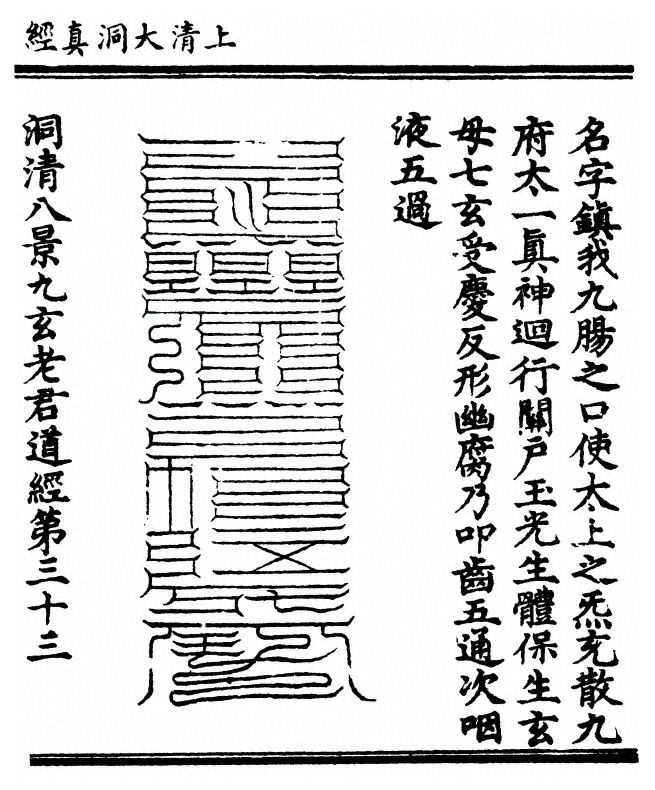 上清大洞真經
名字鎮我九腸之口使太上之炁充散九
府太一真神迴行關戶玉光生體保生玄
母七玄受慶反形幽腐乃叩齒五通次咽
液五過
洞清八景九玄老君道經第三十三